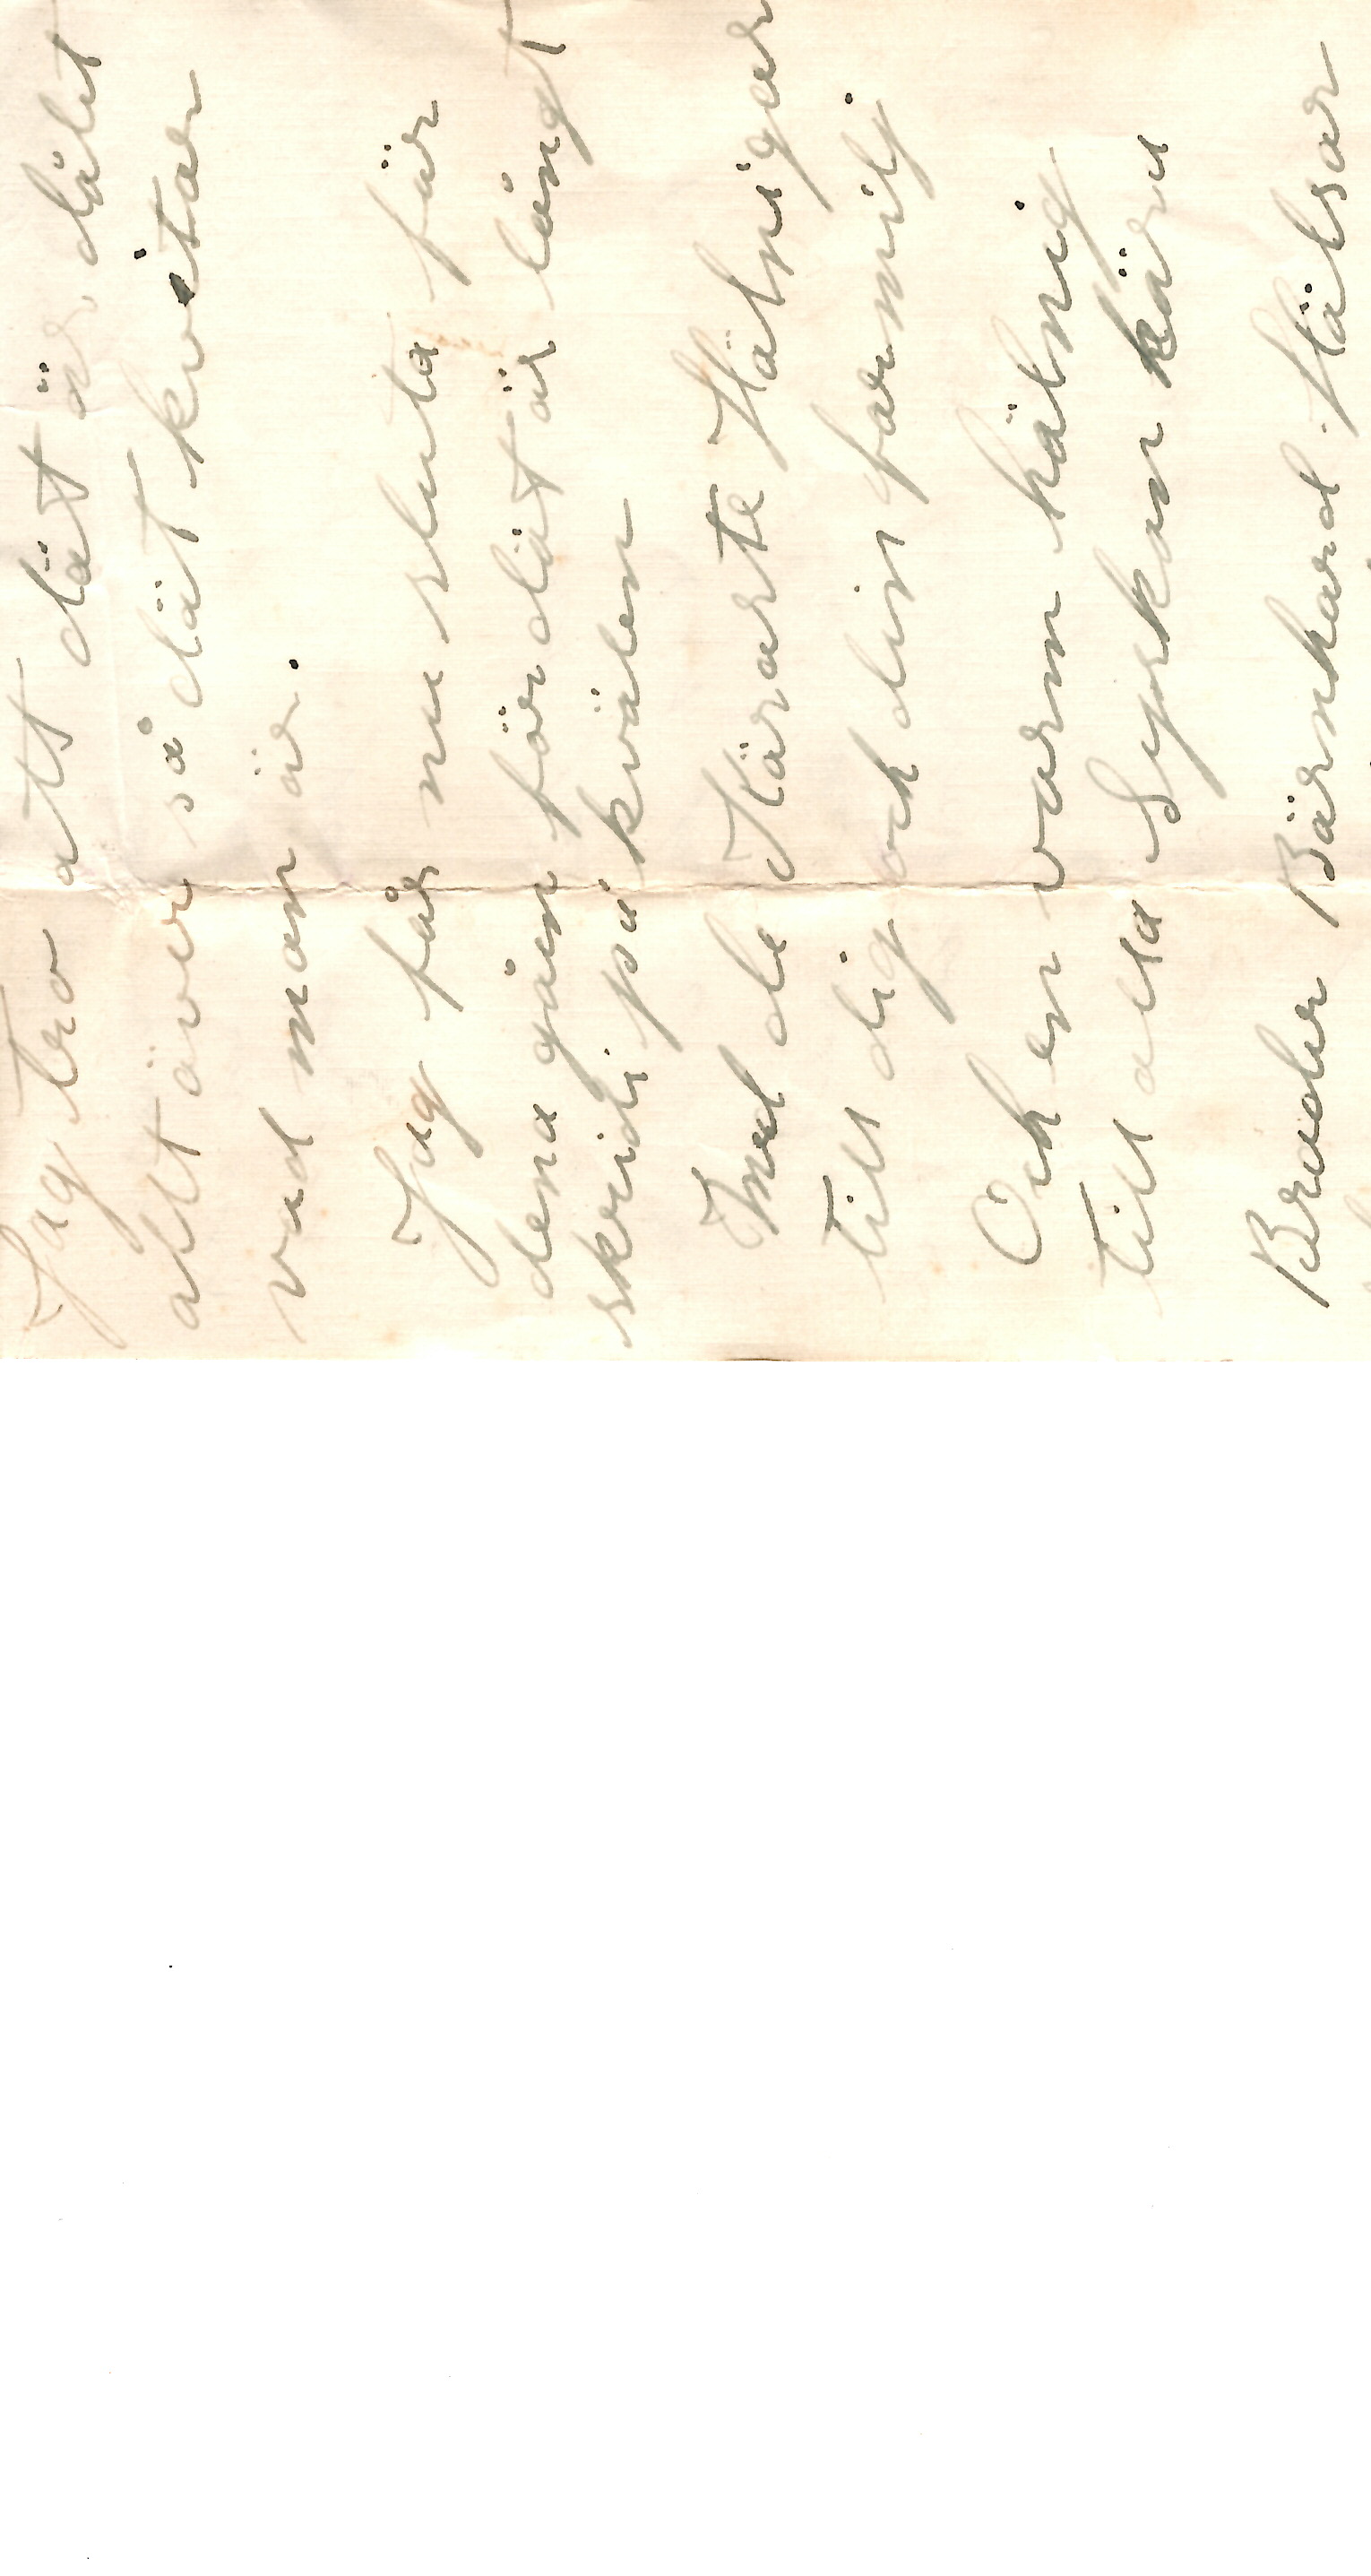 Jag tro att dät är dålit
alt över så dät kvitar
vad man är.
Jag får nu sluta för
dena gåen för dät är långt
skridi på kvälen
Med de Kärarte Hälnigar
till dig och din familj
Och en varm hälnig
till alla Syskon kära
Broder Bärnhard. Hälsar